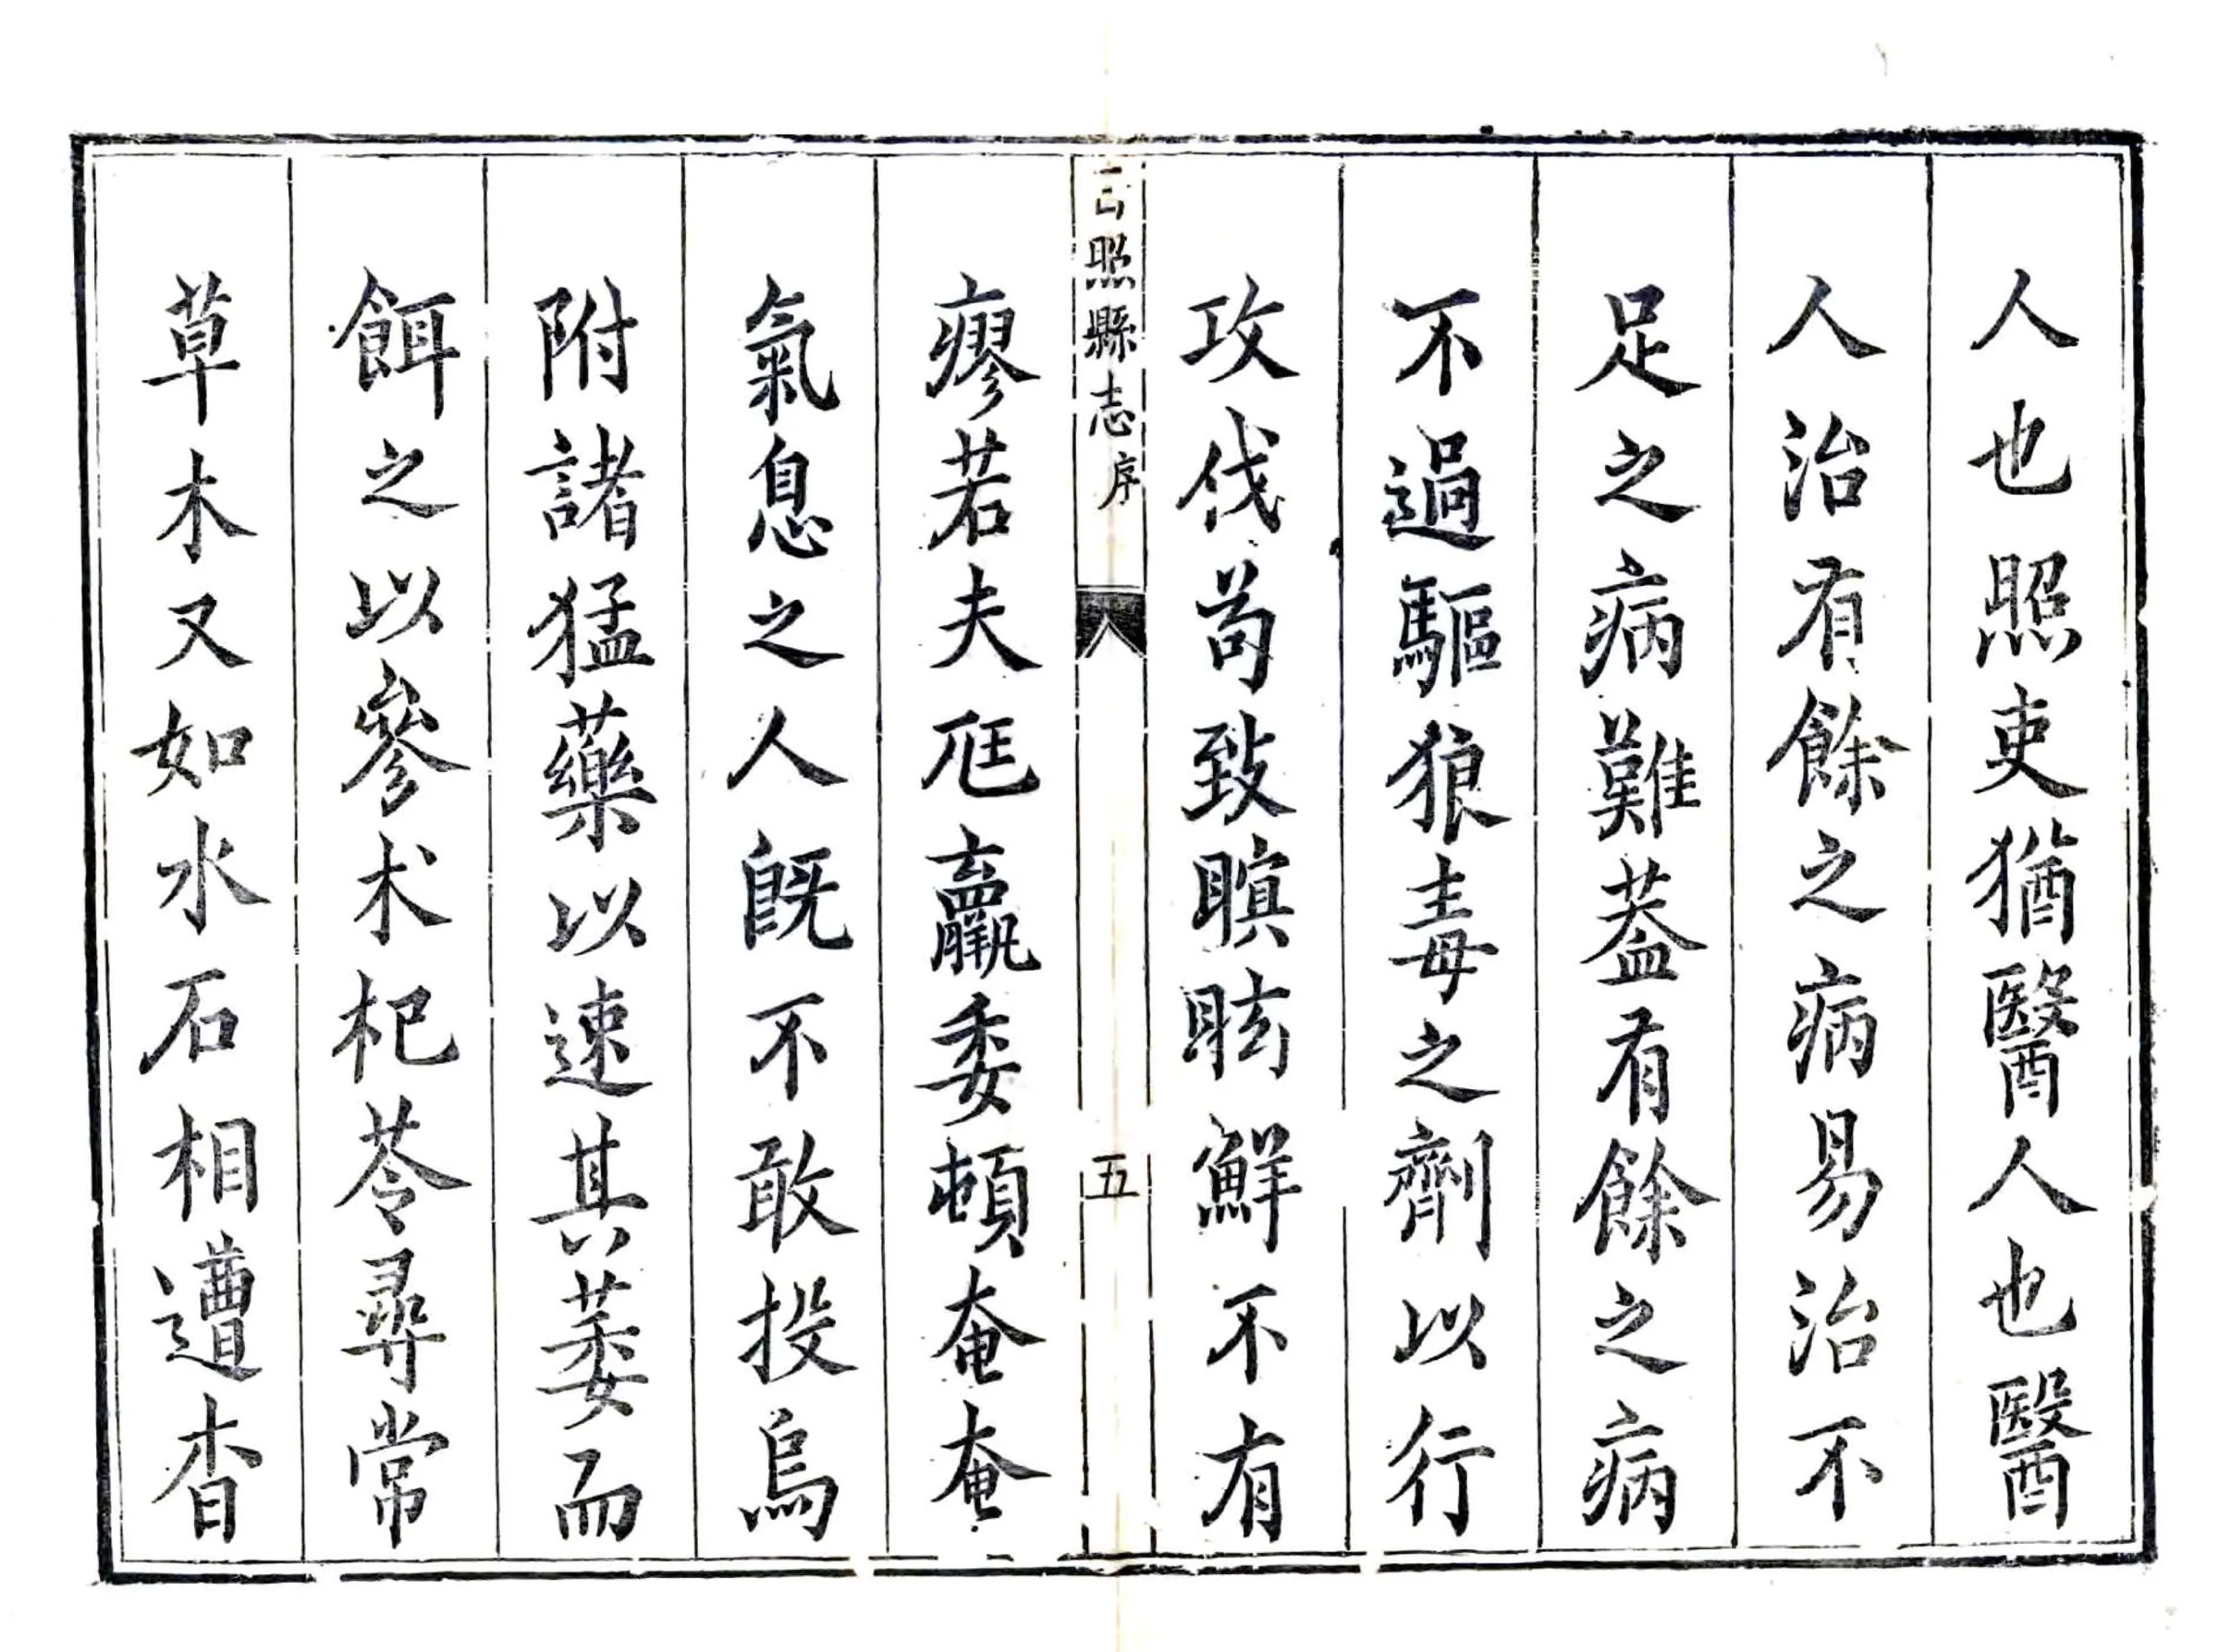 人也照吏猶醫人也醫
人治有餘之病易治不
足之病難葢有餘之病
不過驅狼毒之劑以行
攻伐苟致瞑眩鮮不有
日照縣志 序 五
瘳若夫尫羸委頓奄奄
氣息之人既不敢投烏
附諸猛藥以速其萎而
餌之以參术杞苓尋常
草木又如水石相遭杳